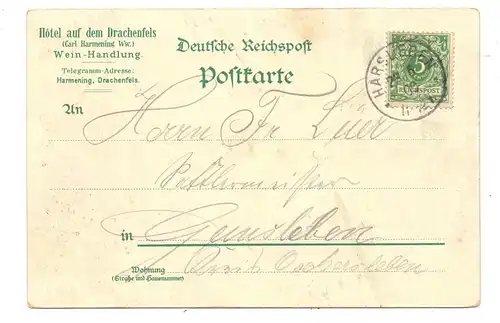 Hôtel auf dem Drachenfels
(Carl Harmening Ww.)
Wein-Handlung.
Telegramm-Adresse:
Harmening, Drachenfels.
Deutsche Reichspost
Postkarte
5
REICHSPOST
An
Herrn Fr Lüer
Sattlermeister
in Gunsleben
Oschersleben
Wohnung
(Straße und Hausnummer)